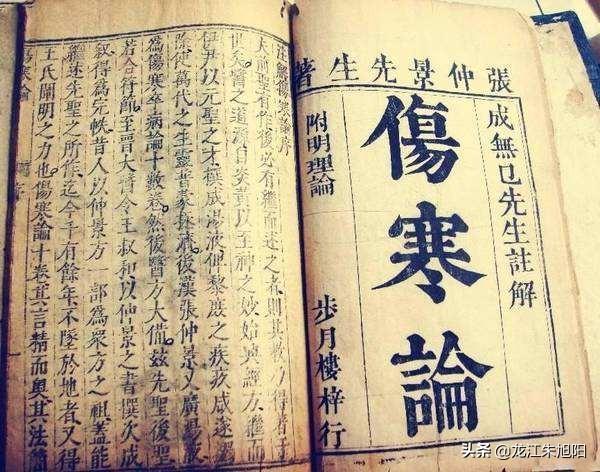 張仲景先生著
成無已先生註解
傷寒論
附明理論
步月樓梓行
注解傷寒論序
夫前聖有作後必有繼而述之者則其教乃得著于
世矣醫之道源自炎黃以至神之妙始興經方繼而
伊尹以元聖之才撰成湯液俾黎庶之疾疚咸遂蠲
除使萬代之生靈普蒙拯濟後漢張仲景又廣湯液
為傷寒卒病論十數卷然後醫方大備茲先聖後聖
若合符節至晉太醫令王叔和以仲景之書撰次成
敘得為完帙昔人以仲景方一部為眾方之祖蓋能
繼述先聖之所作迄今千有餘年不墜於地者又得
王氏闡明之力也傷寒論十卷其言精而奧其法簡
傷寒論 序
头条 @龙江朱旭阳